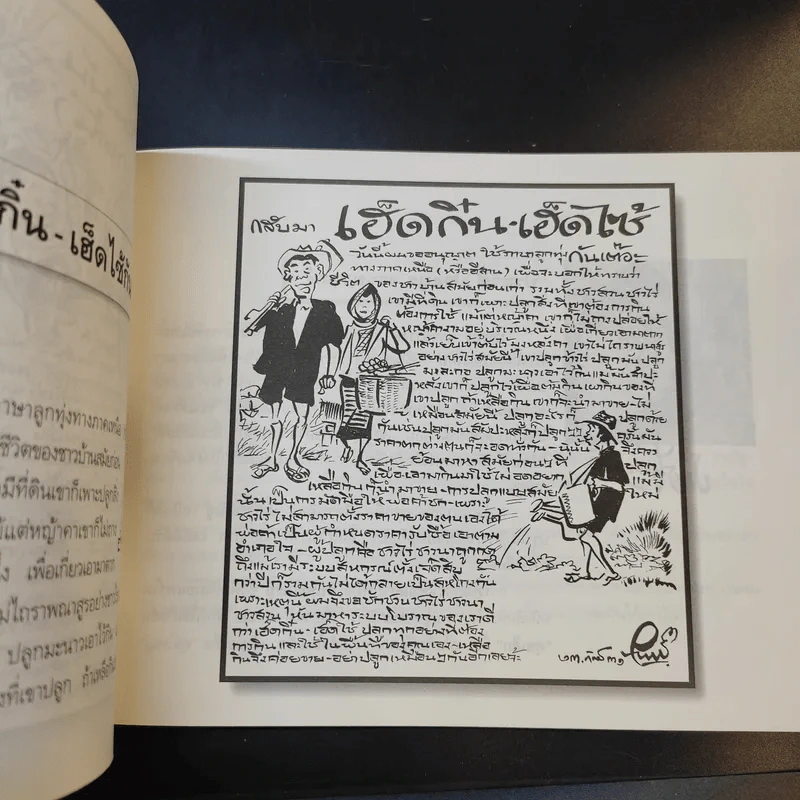 กิ๋น - เฮ็ดไซ้กัน
ภาษาลูกทุ่งทางภาคเหนือ
ชีวิตของชาวบ้านสมัยก่อน
มีที่ดินเขาก็เพาะปลูกสิ่ง
แม้แต่หญ้าคาเขาก็ไม่ถาง
เพื่อเกี่ยวเอามาตาก
ไม่ไถราพณาสูรอย่างชาวไร่
ปลูกมะนาวเอาไว้กิน
ที่เขาปลูก ถ้าเหลือกิน
กลับมา เฮ็ดกิ๋น-เฮ็ดไซ้
วันนี้ผมขออนุญาต ใช้ภาษาลูกทุ่ง กันเต๊อะ
ทางภาคเหนือ (หรืออีสาน) เพื่อจะบอกให้ทราบว่า
ชีวิต ของชาวบ้านสมัยก่อนเก่า รวมทั้งชาวสวนชาวไร่
เขามีที่ดิน เขาก็เพาะปลูกสิ่งที่เขาต้องการกิน
ต้องการใช้ แม้แต่หญ้าคา เขาก็ไม่ถางปล่อยให้
หญ้าคางามอยู่บริเวณหนึ่ง เพื่อเกี่ยวเอามาตาก
แล้วเย็บเข้าตับไว้มุงหลังคา เขาไม่ไถราพณาสูร
อย่างชาวไร่สมัยนี้ เขาปลูกข้าวไร่ ปลูกมันปลูก
มะละกอ ปลูกมะนาวเอาไว้กิน แม้มันสำปะ
หลังเขาก็ปลูกไว้เพื่อต้มกิน เผากินของที่
เขาปลูก ถ้าเหลือกิน เขาก็จะนำมาขาย-ไม่
เหมือนสมัยนี้ ปลูกอะไรก็ ปลูกด้วย
กันเช่นปลูกมันสำปะหลังก็ปลูกๆๆ ครั้นมัน
ราคาตกต่างคนก็จะอดทั้งกัน-นี่นั้น จึงควร
ย้อนมาหาสมัยก่อนๆที่ ปลูก
เพื่อเอามากินมาใช้ไม่อดอยาก
เหลือกินก็นำมาขาย-การปลูกแบบสมัย ใหม่
นั้นเป็นการมัดมือให้พ่อค้าชก-เพราะ
ชาวไร่ไม่สามารถตั้งราคาขายของตนเองได้
พ่อค้าเป็นผู้กำหนดราคารับซื้อเอาตาม
อำเภอใจ-ผู้ปลูกคือชาวไร่ชาวนาถูกกด
ถึงแม้เรามีระบบสหกรณ์ตั้งเจ็ดสิบ
กว่าปีก็รวมกันไม่ได้กลายเป็นสหโกงกัน
เพราะเหตุนี้ผมจึงขอชักชวนชาวไร่ชาวนา
ชาวสวนหันมาหาระบบโบราณของเราดี
กว่าเฮ็ดกิ๋น-เฮ็ดไซ้ ปลูกทุกอย่างที่ต้อง
การกินและใช้ในพื้นที่ของคุณเอง-เหลือ
กินจึงค่อยขาย-อย่าปลูกเหมือนๆกันอีกเลยจ้ะ